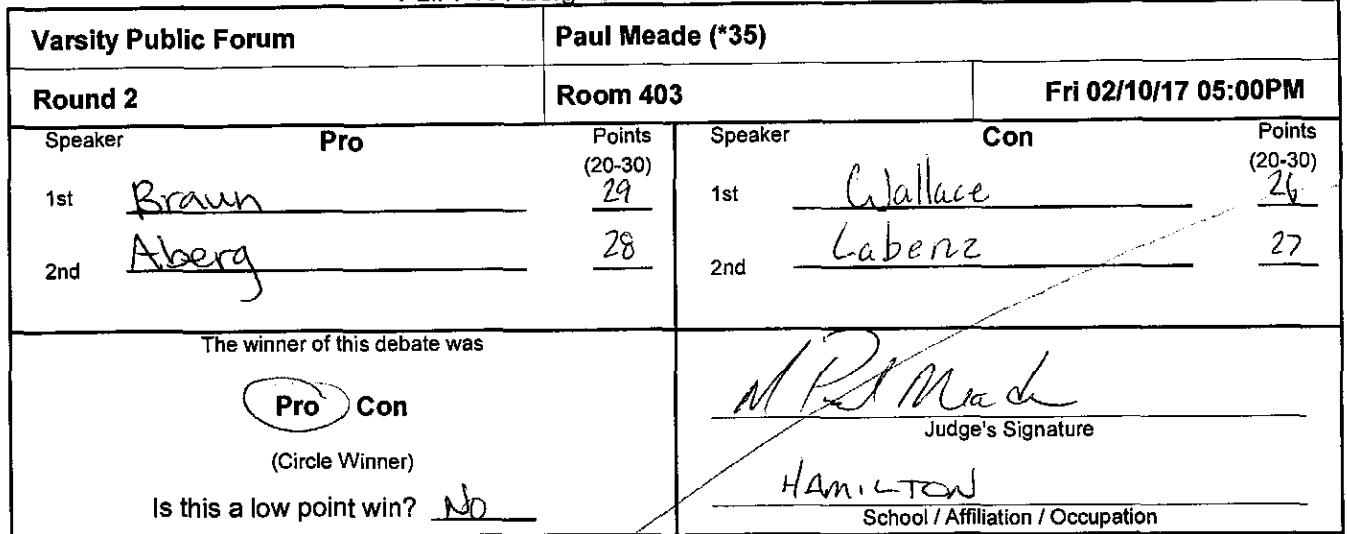 Varsity Public Forum Paul Meade (*35)
Round 2 Room 403 Fri 02/10/17 05:00PM
Speaker Pro Points Speaker Con Points
(20-30) (20-30)
1st Braun 29 1st Wallace 26
2nd Aberg 28 2nd Labenz 27
The winner of this debate was
Pro Con
(Circle Winner)
Is this a low point win? No
M Paul Meade
Judge's Signature
HAMILTON
School / Affiliation / Occupation